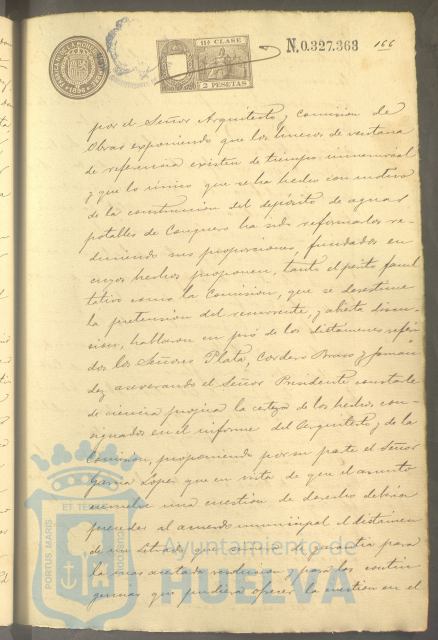 11ª CLASE
2 PESETAS
N.0.327.368
166
por el Señor Arquitecto y Comision de
Obras exponiendo que los huecos de ventana
de referencia existen de tiempo inmemorial
y que lo único que se ha hecho con motivo
de la construccion del depósito de aguas
potables de Conquero ha sido reformarlos re-
duciendo sus proporciones, fundados en
cuyos hechos proponen, tanto el perito facul
tativo como la Comision, que se desestime
la pretension del recurrente, y abierta discu-
sion, hablaron en pró de los dictámenes referi
dos los Señores Plata, Cordero Bravo y
dez aseverando el Señor Presidente constarle
de ciencia propia la certeza de los hechos con-
signados en el informe del Arquitecto y de la
Comision, proponiendo por su parte el Señor
Garcia Lopez que en vista de que el asunto
envuelve una cuestion de derecho debia
preceder al acuerdo municipal el dictamen
de un Letrado que serviria de garantia para
la mas acertada resolucion y para las contin
gencias que pudiera ofrecer la cuestion en el
PORTUS MARIS
ET TERRAE
CUSTODIA
Ayuntamiento de
HUELVA